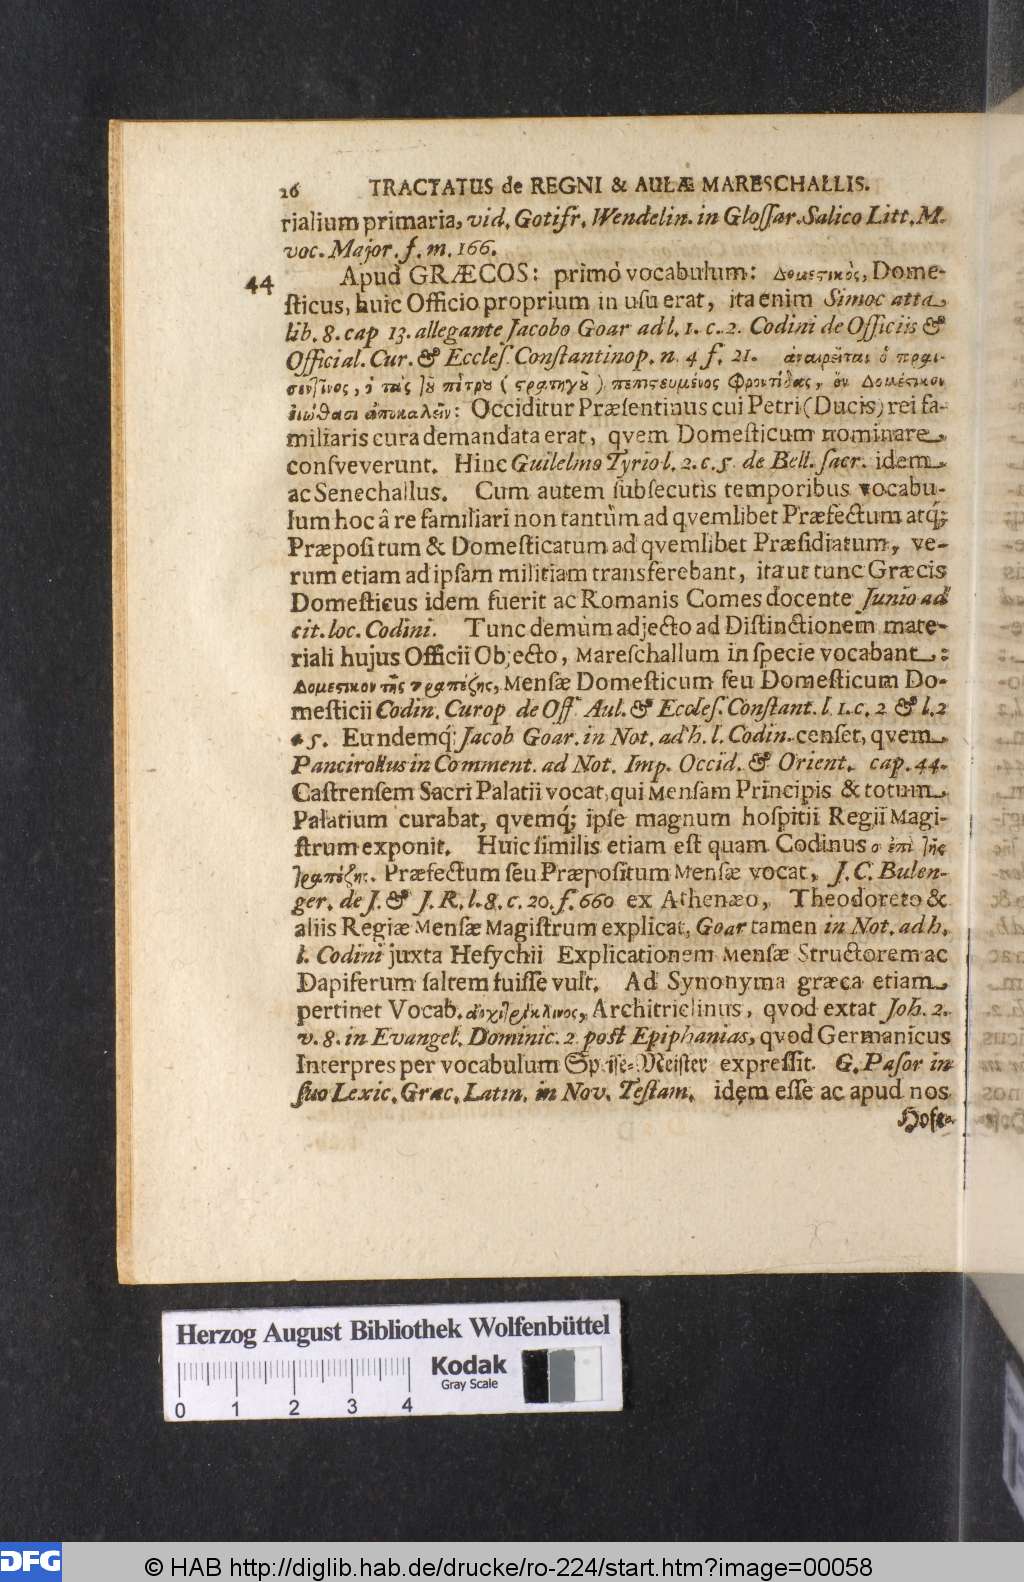 26 TRACTATUS de REGNI & AULÆ MARESCHALLIS.
rialium primaria, vid. Gotifr. Wendelin. in Gloſſar. Salico Litt. M.
voc. Major. f. m. 166.
44 Apud GRÆCOS: primò vocabulum: Δομεςικὸς, Dome-
ſticus, huic Officio proprium in uſu erat, ita enim Simoc atta
lib. 8. cap 13. allegante Jacobo Goar ad l. 1. c. 2. Codini de Officiis &
Official. Cur. & Eccleſ. Conſtantinop. n. 4 f. 21. ἀναιρεῖται ὁ πραι-
σεντῖνος, ὁ τὰς τοῦ πέτρου (ςρατηγοῦ) πεπιςευμένος Φροντίδας, ὃν Δομέςικον
εἰώθασι ἀποκαλεῖν: Occiditur Præſentinus cui Petri (Ducis) rei fa-
miliaris cura demandata erat, qvem Domeſticum nominare
conſveverunt. Hinc Guilelmo Tyrio l. 2. c. 5. de Bell. ſacr. idem
ac Senechallus. Cum autem ſubſecutis temporibus vocabu-
lum hoc â re familiari non tantùm ad qvemlibet Præfectum atq́;
Præpoſitum & Domeſticatum ad qvemlibet Præſidiatum, ve-
rum etiam ad ipſam militiam transferebant, ita ut tunc Græcis
Domeſticus idem fuerit ac Romanis Comes docente Junio ad
cit. loc. Codini. Tunc demùm adjecto ad Diſtinctionem mate-
riali hujus Officii Objecto, Mareſchallum in ſpecie vocabant:
Δομεςικον τῆς τραπέζης, Menſæ Domeſticum ſeu Domeſticum Do-
meſticii Codin. Curop de Off. Aul. & Eccleſ. Conſtant. l. 1. c. 2 & l. 2
c 5. Eundemq́; Jacob Goar. in Not. ad h. l. Codin. cenſet, qvem
Pancirollus in Comment. ad Not. Imp. Occid. & Orient. cap. 44.
Caſtrenſem Sacri Palatii vocat, qui Menſam Principis & totum
Palatium curabat, qvemq́; ipſe magnum hoſpitii Regii Magi-
ſtrum exponit. Huic ſimilis etiam eſt quam Codinus ο ἐπὶ τῆς
τραπέζης. Præfectum ſeu Præpoſitum Menſæ vocat, J. C. Bulen-
ger. de J. & J. R. l. 8. c. 20. f. 660 ex Athenæo, Theodoreto &
aliis Regiæ Menſæ Magiſtrum explicat, Goar tamen in Not. ad h.
l. Codini juxta Heſychii Explicationem Menſæ Structorem ac
Dapiferum ſaltem fuiſſe vult. Ad Synonyma græca etiam
pertinet Vocab. ἀρχιτρίκλινος, Architriclinus, qvod extat Joh. 2.
v. 8. in Evangel. Dominic. 2 poſt Epiphanias, qvod Germanicus
Interpres per vocabulum Speiſe-Meiſter expreſſit. G. Paſor in
ſuo Lexic. Græc. Latin. in Nov. Teſtam. idem eſſe ac apud nos
Hofe-
Herzog August Bibliothek Wolfenbüttel
Kodak
Gray Scale
0 1 2 3 4
DFG © HAB http://diglib.hab.de/drucke/ro-224/start.htm?image=00058